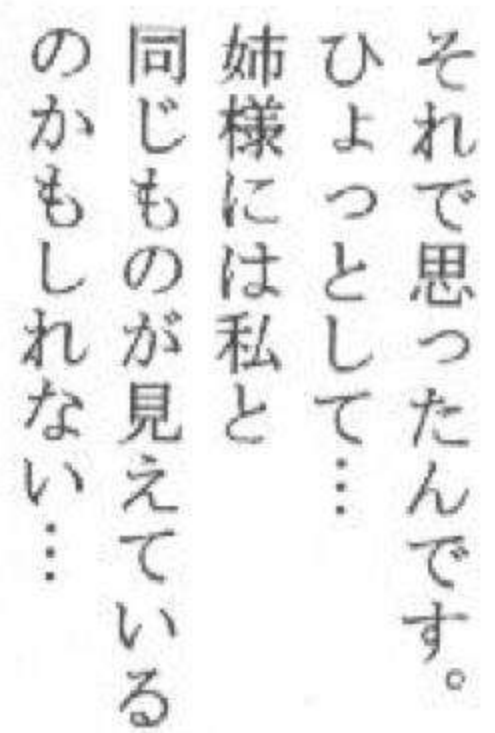 それで思ったんです。
ひょっとして…
姉様には私と
同じものが見えている
のかもしれない…